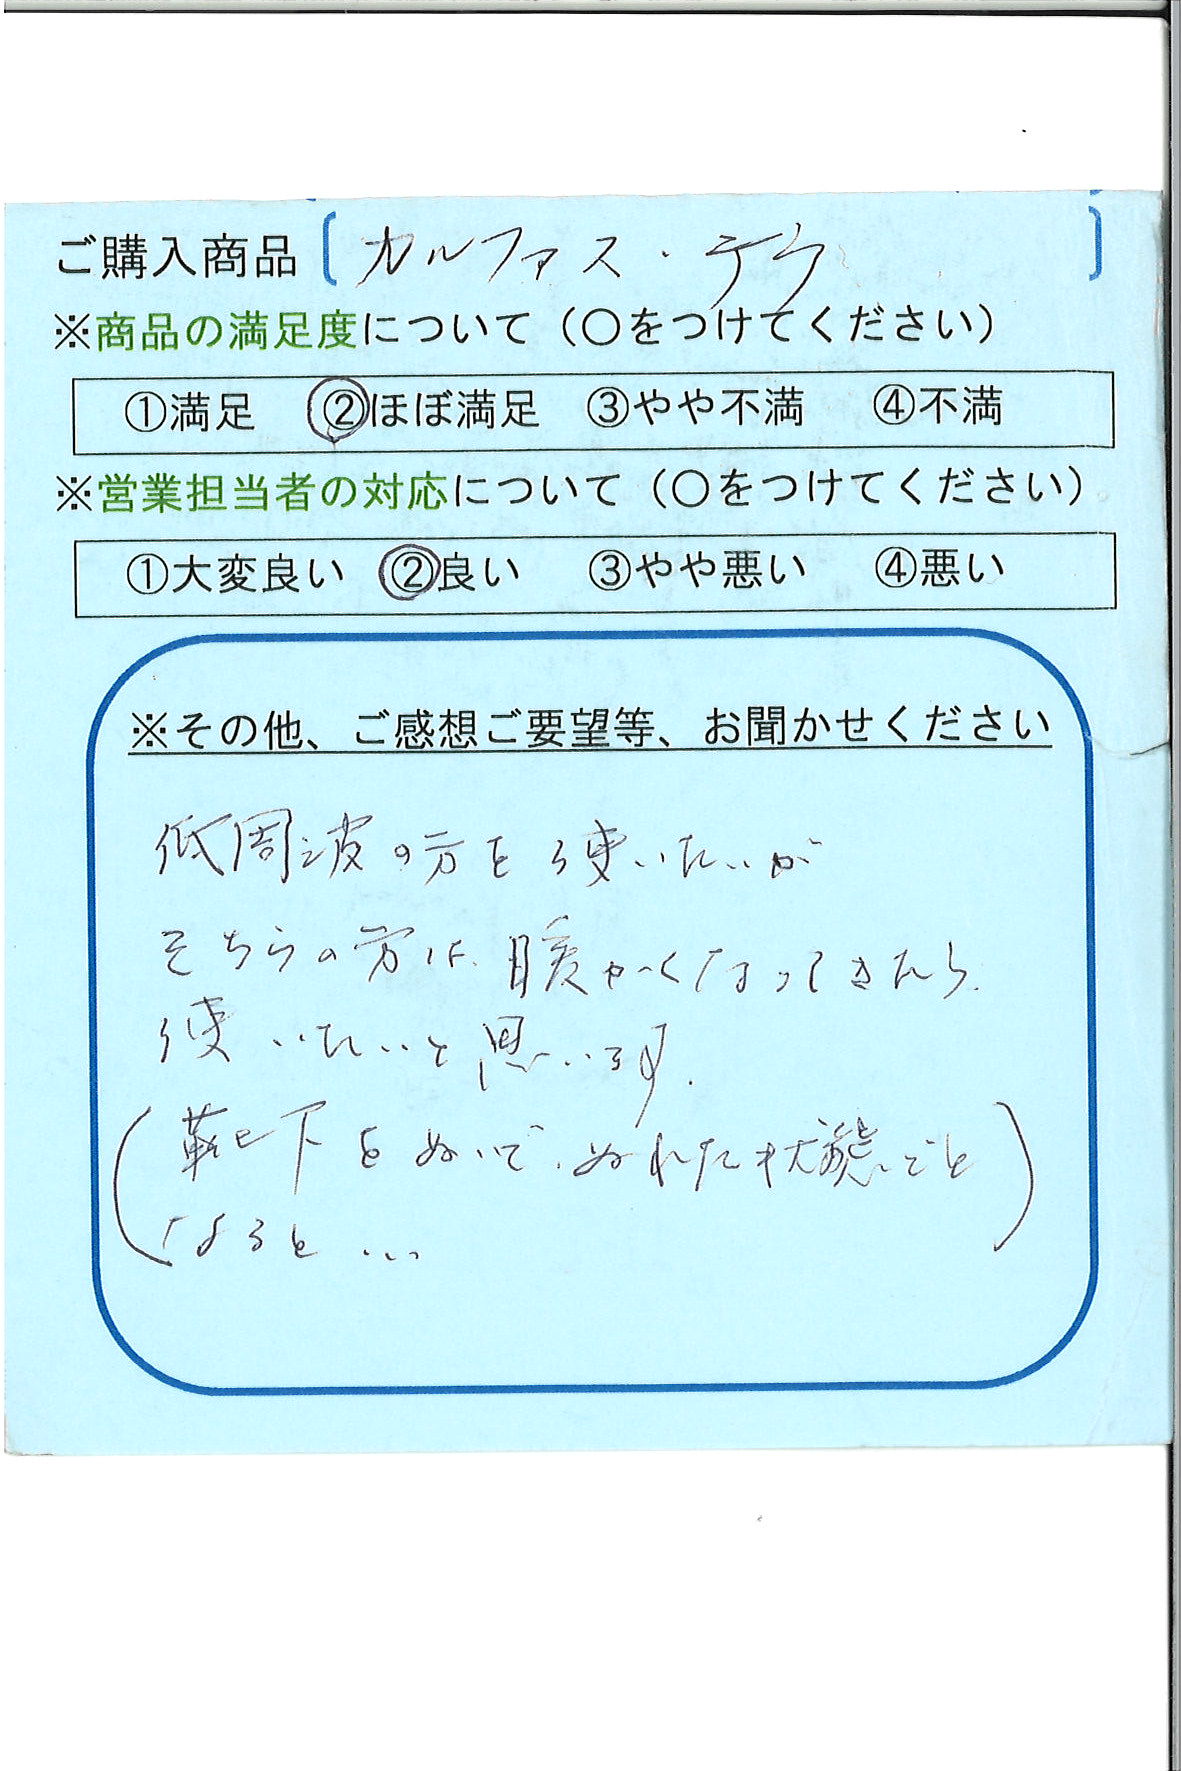 ご購入商品〔カルファス・テラ〕
※商品の満足度について（○をつけてください）
①満足 ②ほぼ満足 ③やや不満 ④不満
※営業担当者の対応について（○をつけてください）
①大変良い ②良い ③やや悪い ④悪い
※その他、ご感想ご要望等、お聞かせください
低周波の方を使いたいが
そちらの方は、暖かくなってきたら、
使いたいと思います。
（靴下をぬいで、ぬれた状態でと
なると…）